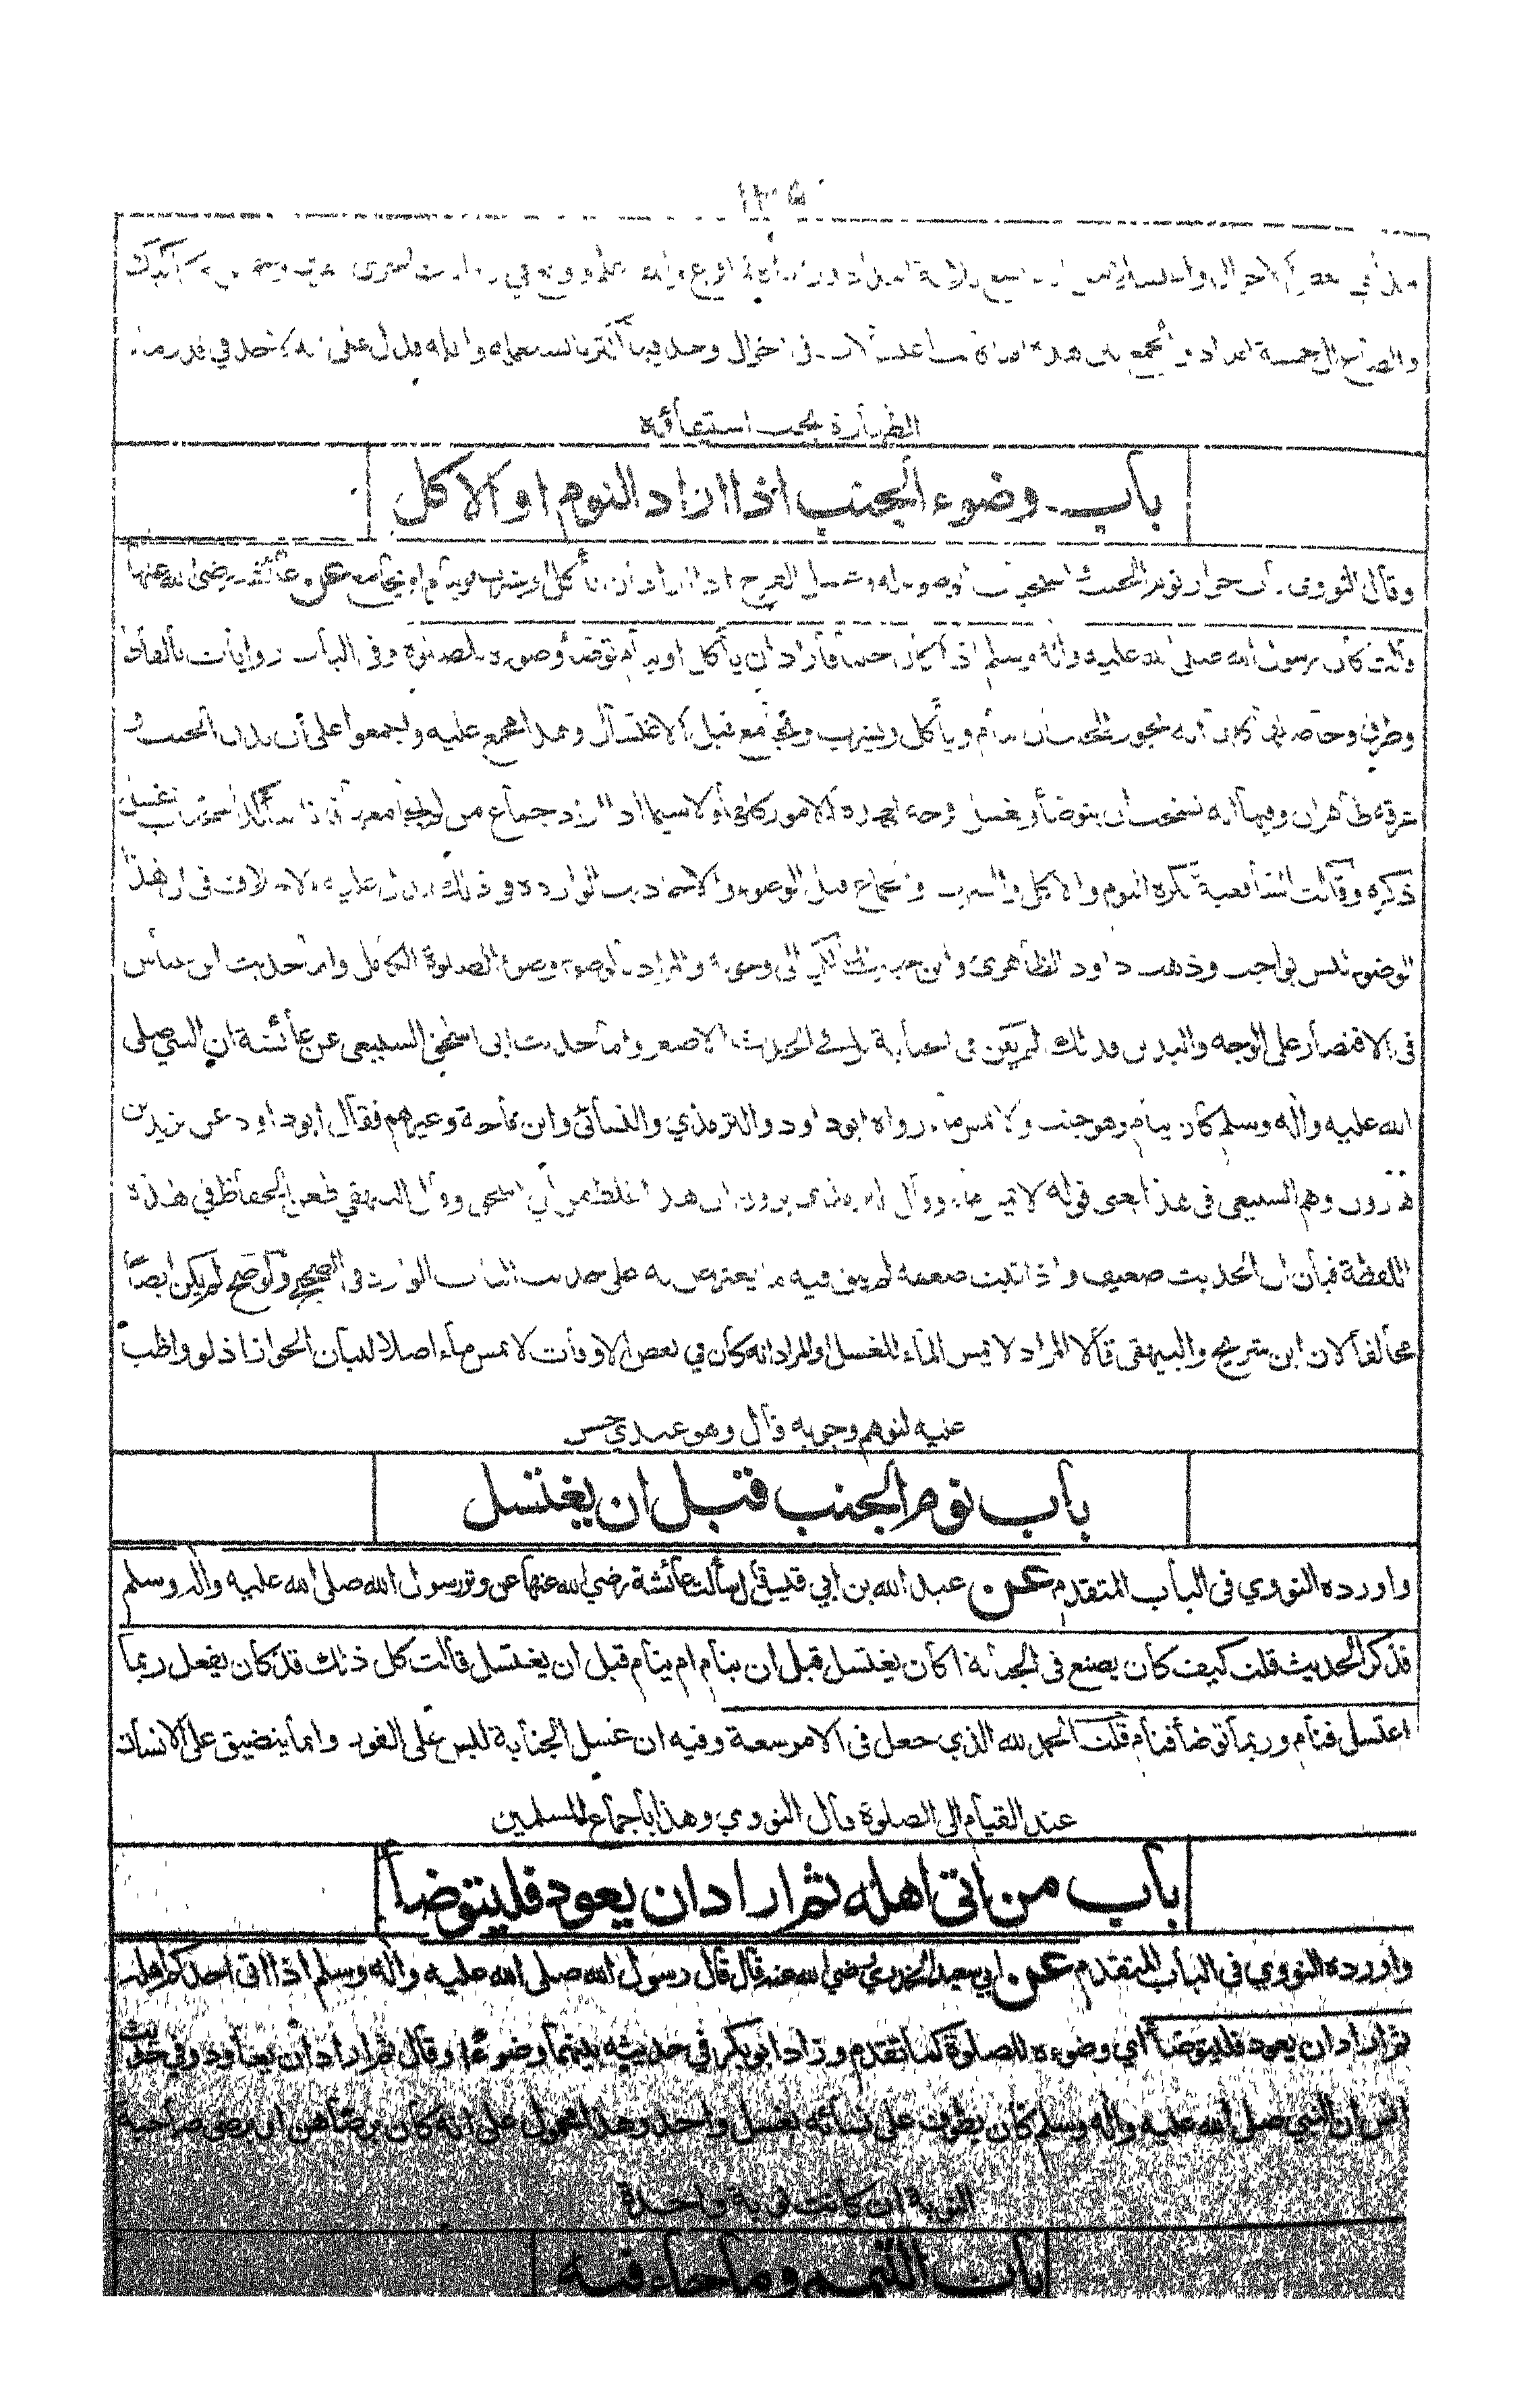 في الاحوال
والصاع الى خمسة امداد والجمع بين هذه الروايات في احوال وجد فيها اكثر ما استعمله واقله فدل على انه لا حد في قدر ماء
الطهارة يجب استيفاؤه
باب وضوء الجنب اذا اراد النوم او الاكل
وقال النووي باب جواز نوم الجنب واستحباب الوضوء له وغسل الفرج اذا اراد ان يأكل او يشرب او ينام او يجامع عن عائشة رضي الله عنها
قالت كان رسول الله صلى الله عليه وآله وسلم اذا كان جنبا فأراد ان يأكل او ينام توضأ وضوءه للصلوة وفي الباب روايات بألفاظ
وطرق وحاصلها كلها انه يجوز للجنب ان ينام ويأكل ويشرب ويجامع قبل الاغتسال وهذا مجمع عليه واجمعوا على أن بدن الجنب و
عرقه طاهران وفيها انه يستحب ان يتوضأ ويغسل فرجه لهذه الامور كلها ولا سيما اذا اراد جماع من لم يجامعها فانه يتأكد استحباب غسل
ذكره وقالت الشافعية يكره النوم والاكل والشرب والجماع قبل الوضوء والاحاديث الواردة في ذلك تدل عليه ولا خلاف في ان هذا
الوضوء ليس بواجب وذهب داود الظاهري وابن حبيب المالكي الى وجوبه والمراد بالوضوء وضوء الصلوة الكامل واما حديث ابن عباس
في الاقتصار على الوجه واليدين فذلك لم يكن في الجنابة بل في الحدث الاصغر واما حديث ابي اسحق السبيعي عن عائشة ان النبي صلى
الله عليه وآله وسلم كان ينام وهو جنب ولا يمس ماء رواه ابو داود والترمذي والنسائي وابن ماجة وغيرهم فقال ابو داود عن يزيد بن
هارون وهم السبيعي في هذا يعني قوله لا يمس ماء وقال الترمذي يرون ان هذا غلط من أبي اسحق وقال البيهقي طعن الحفاظ في هذه
اللفظة فبان ان الحديث ضعيف واذا ثبت ضعفه لم يبق فيه ما يعترض به على حديث الباب الوارد في الصحيح ولو صح لم يكن ايضا
مخالفا لان ابن سريج والبيهقي قالا المراد لا يمس الماء للغسل او المراد انه كان في بعض الاوقات لا يمس ماء اصلا لبيان الجواز اذ لو واظب
عليه لتوهم وجوبه قال وهو عندي حسن
باب نوم الجنب قبل ان يغتسل
واورده النووي في الباب المتقدم عن عبد الله بن ابي قيس قال سألت عائشة رضي الله عنها عن وتر رسول الله صلى الله عليه وآله وسلم
فذكر الحديث قلت كيف كان يصنع في الجنابة اكان يغتسل قبل ان ينام ام ينام قبل ان يغتسل قالت كل ذلك قد كان يفعل ربما
اغتسل فنام وربما توضأ فنام قلت الحمد لله الذي جعل في الامر سعة وفيه ان غسل الجنابة ليس على الفور وانما يتضيق على الانسان
عند القيام الى الصلوة قال النووي وهذا بأجماع المسلمين
باب من اتى اهله ثم اراد ان يعود فليتوضأ
واورده النووي في الباب المتقدم عن ابي سعيد الخدري رضي الله عنه قال قال رسول الله صلى الله عليه وآله وسلم اذا اتى احدكم اهله
ثم اراد ان يعود فليتوضأ اي وضوءه للصلوة كما تقدم وزاد ابو بكر في حديثه بينهما وضوءا وقال ثم اراد أن يعاود وفي حديث
انس ان النبي صلى الله عليه وآله وسلم كان يطوف على نسائه بغسل واحد وهذا محمول على انه كان برضاهن او برضى صاحبة
النوبة ان كانت نوبة واحدة
باب التيمم وما جاء فيه